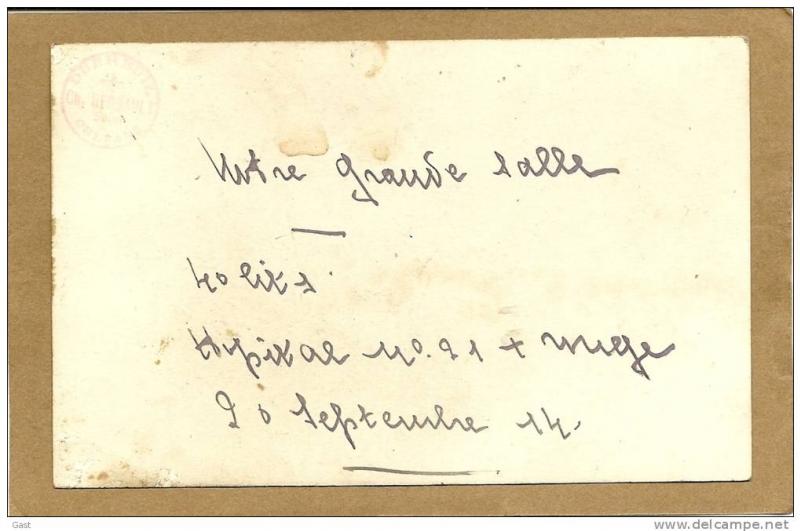 Notre grande salle
40 lits.
Hopital No. 21 + rouge
20 Septembre 14.
Gast
www.delcampe.net